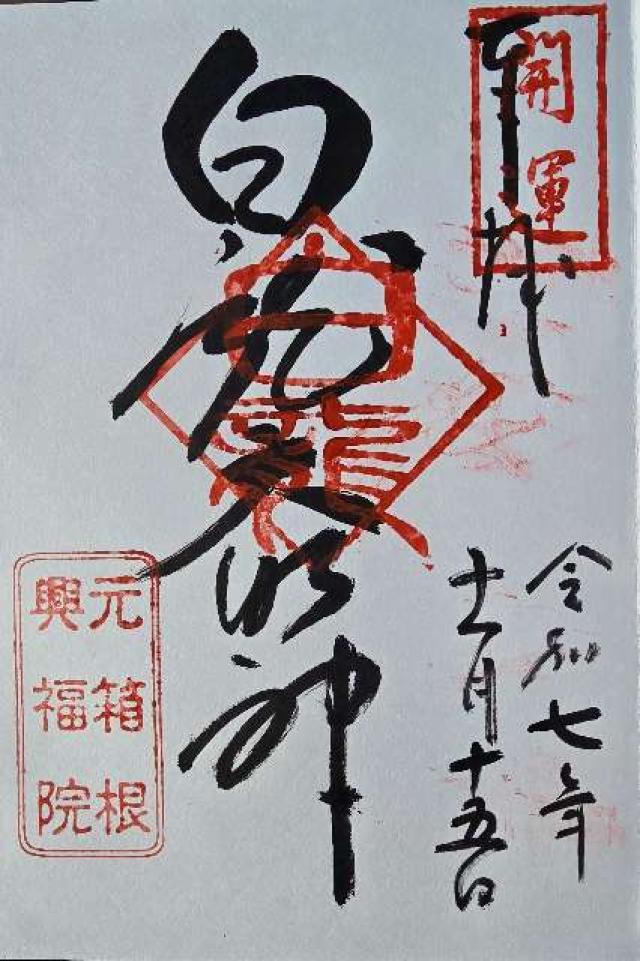 開運
奉拝
令和七年
十一月十五日
白龍大明神
白龍
元箱根
興福院